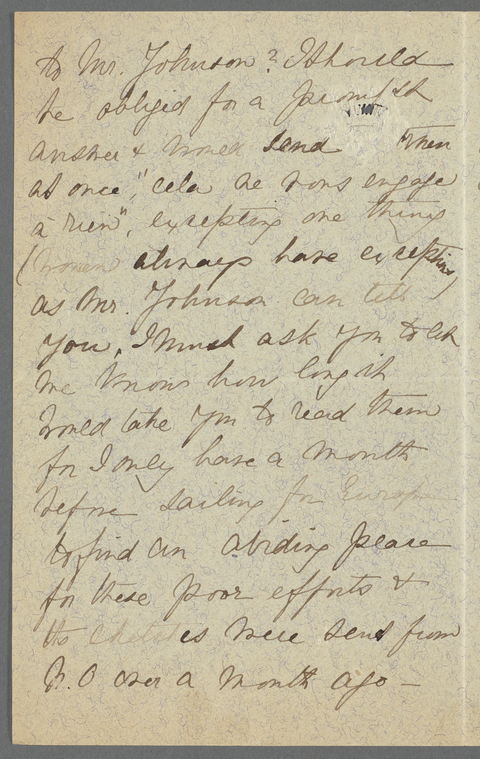 to Mr. Johnson? I should
be obliged for a prompt
answer & would send them
at once, "cela ne vous engage
à rien", excepting one thing
(women always have exceptions
as Mr. Johnson can tell
you. I must ask you to let
me know how long it
would take you to read them
for I only have a month
before sailing for Europe
to find an abiding place
for these poor efforts &
the were sent from
N.O over a month ago —